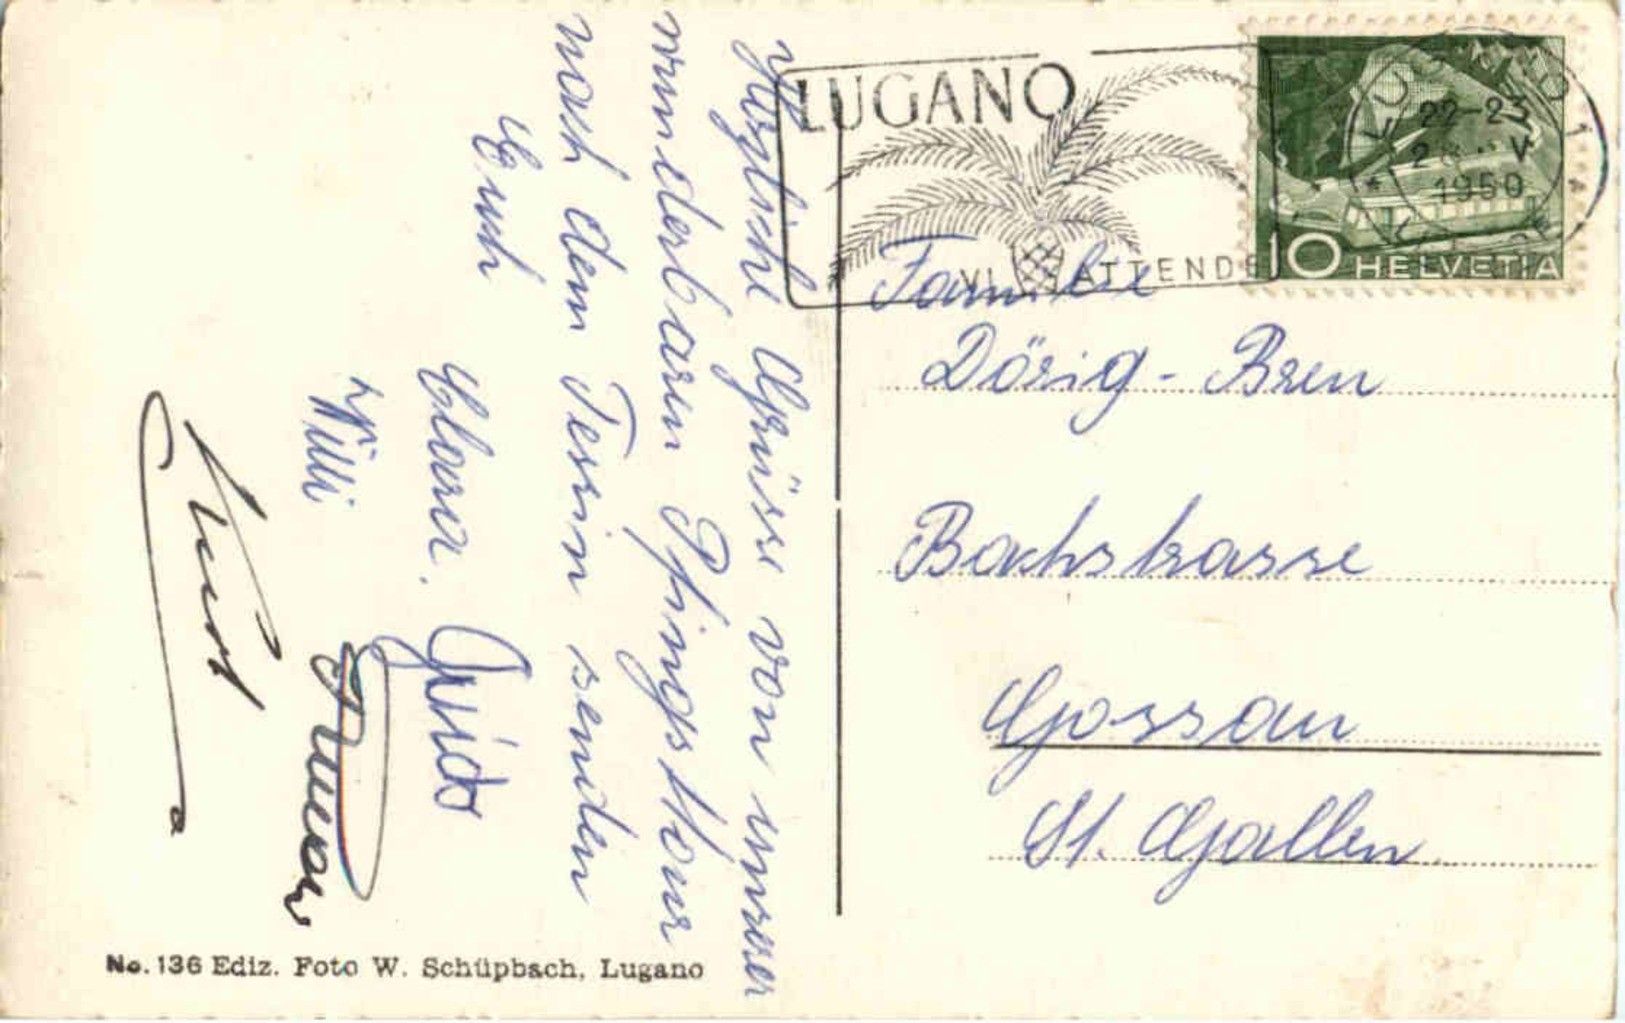 Herzliche Grüsse von unserer
wunderbaren Pfingsttour
nach dem Tessin senden
Euch
Clara. Guido
Willi
Kurt
LUGANO
VI ATTENDE
LUGANO 1
22-23
V
1950
10 HELVETIA
Familie
Dörig - Bren
Bachstrasse
Gossau
St. Gallen
No. 136 Ediz. Foto W. Schüpbach, Lugano